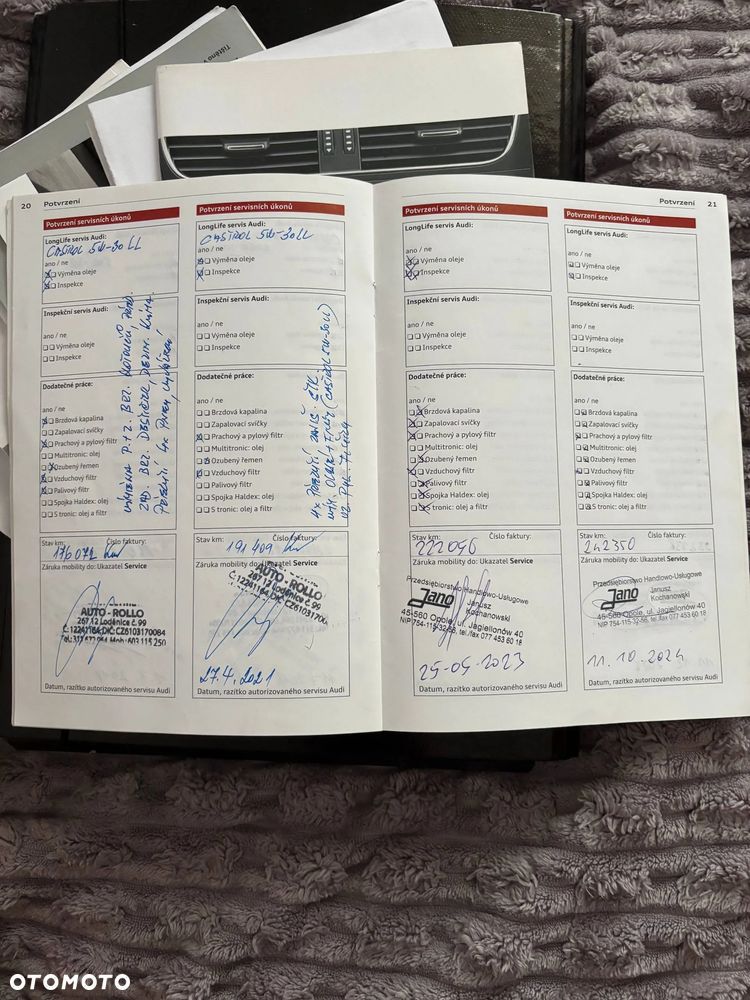 Tištěno v
20 Potvrzení
Potvrzení servisních úkonů
LongLife servis Audi:
CASTROL 5W-30 LL
ano / ne
Výměna oleje
Inspekce
Inspekční servis Audi:
ano / ne
Výměna oleje
Inspekce
Dodatečné práce:
ano / ne
Brzdová kapalina
Zapalovací svíčky
Prachový a pylový filtr
Multitronic: olej
Ozubený řemen
Vzduchový filtr
Palivový filtr
Spojka Haldex: olej
S tronic: olej a filtr
Stav km: Číslo faktury:
176 072 km
Záruka mobility do: Ukazatel Service
AUTO - ROLLO
267 12 Loděnice č. 99
Datum, razítko autorizovaného servisu Audi
Potvrzení servisních úkonů
LongLife servis Audi:
CASTROL 5W-30 LL
ano / ne
Výměna oleje
Inspekce
Inspekční servis Audi:
ano / ne
Výměna oleje
Inspekce
Dodatečné práce:
ano / ne
Brzdová kapalina
Zapalovací svíčky
Prachový a pylový filtr
Multitronic: olej
Ozubený řemen
Vzduchový filtr
Palivový filtr
Spojka Haldex: olej
S tronic: olej a filtr
Stav km: Číslo faktury:
191 409 km
Záruka mobility do: Ukazatel Service
AUTO - ROLLO
267 12 Loděnice č. 99
27.4.2021
Datum, razítko autorizovaného servisu Audi
Potvrzení 21
Potvrzení servisních úkonů
LongLife servis Audi:
ano / ne
Výměna oleje
Inspekce
Inspekční servis Audi:
ano / ne
Výměna oleje
Inspekce
Dodatečné práce:
ano / ne
Brzdová kapalina
Zapalovací svíčky
Prachový a pylový filtr
Multitronic: olej
Ozubený řemen
Vzduchový filtr
Palivový filtr
Spojka Haldex: olej
S tronic: olej a filtr
Stav km: Číslo faktury:
222096
Záruka mobility do: Ukazatel Service
Przedsiębiorstwo Handlowo-Usługowe
Jano Janusz
Kochanowski
45-560 Opole, ul. Jagiellonów 40
NIP 754-115-32-56, tel./fax 077 453 60 18
25-05-2023
Datum, razítko autorizovaného servisu Audi
Potvrzení servisních úkonů
LongLife servis Audi:
ano / ne
Výměna oleje
Inspekce
Inspekční servis Audi:
ano / ne
Výměna oleje
Inspekce
Dodatečné práce:
ano / ne
Brzdová kapalina
Zapalovací svíčky
Prachový a pylový filtr
Multitronic: olej
Ozubený řemen
Vzduchový filtr
Palivový filtr
Spojka Haldex: olej
S tronic: olej a filtr
Stav km: Číslo faktury:
242350
Záruka mobility do: Ukazatel Service
Przedsiębiorstwo Handlowo-Usługowe
Jano Janusz
Kochanowski
45-560 Opole, ul. Jagiellonów 40
NIP 754-115-32-56, tel./fax 077 453 60 18
11.10.2024
Datum, razítko autorizovaného servisu Audi
OTOMOTO